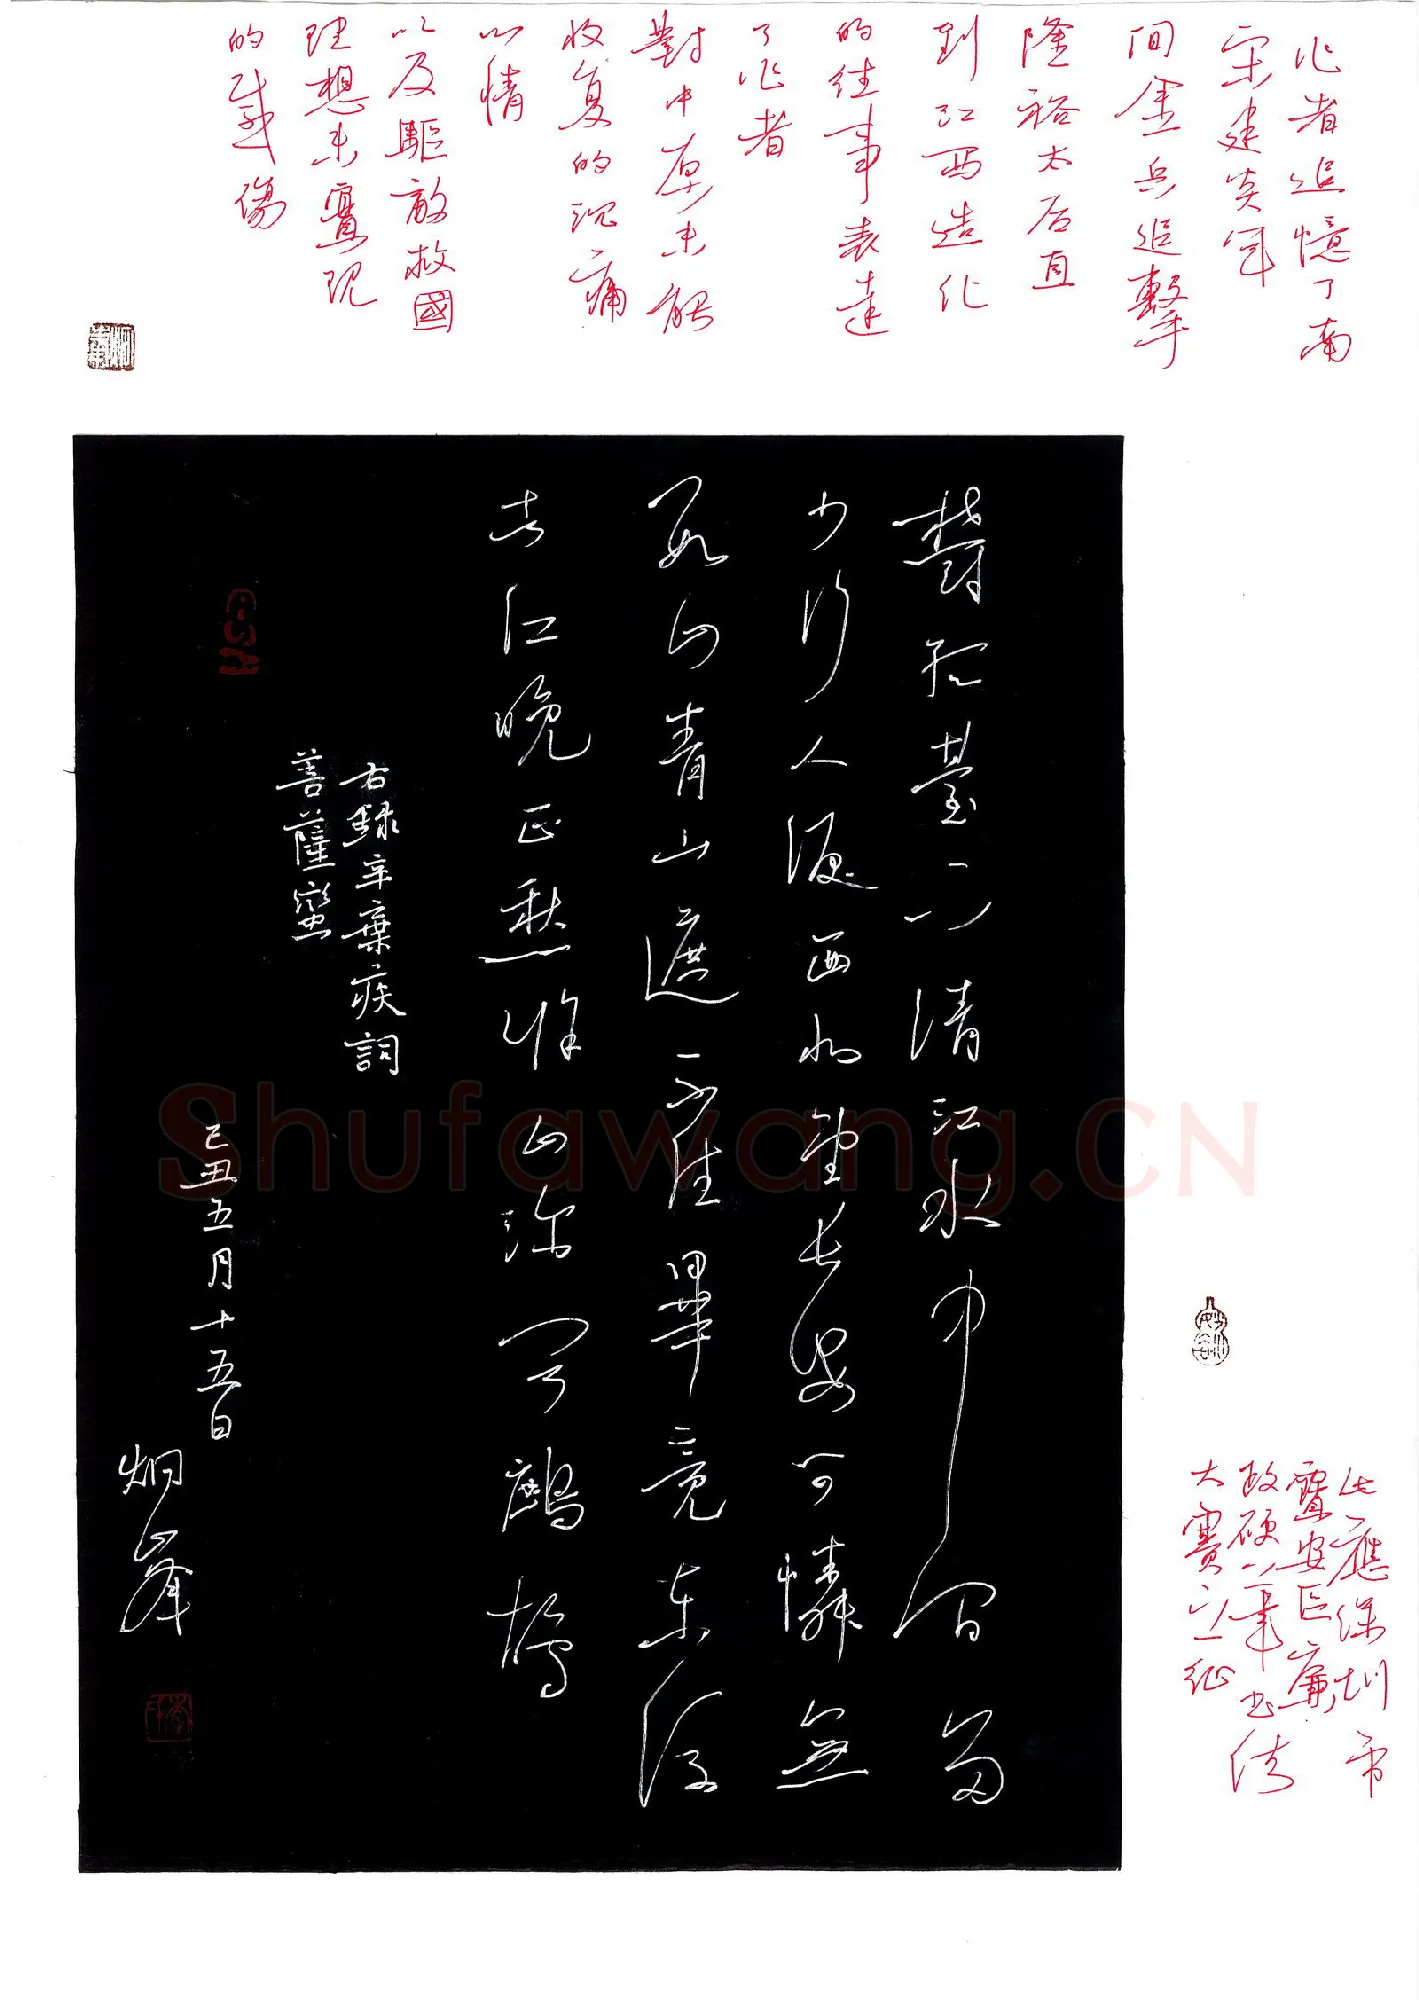 作者追憶了南
宋建炎年
間金兵追擊
隆裕太后直
到江西造化
的往事表達
了作者
對中原未能
收复的沉痛
心情
以及驅敵救國
理想未實現
的感傷
鬱孤臺下清江水中間多
少行人淚西北望長安可憐無
數山青山遮不住畢竟東流
去江晚正愁余山深聞鷓鴣
右錄辛棄疾詞
菩薩蠻
己丑五月十五日
炯峰
此應深圳市
寶安區廉
政硬筆書法
大賽之征
Shufawang.CN